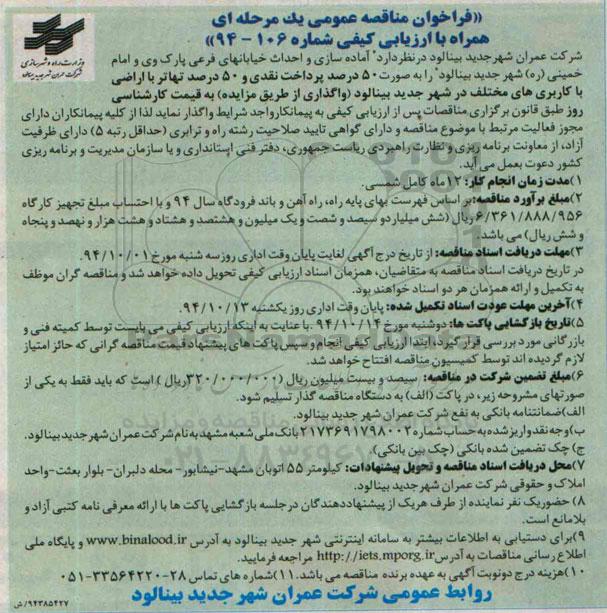 «فراخوان مناقصه عمومی یک مرحله ای
همراه با ارزیابی کیفی شماره ۱۰۶ - ۹۴»
وزارت راه و شهرسازی
شرکت عمران شهر جدید بینالود
شرکت عمران شهر جدید بینالود در نظر دارد" آماده سازی و احداث خیابانهای فرعی پارک وی و امام
خمینی (ره) شهر جدید بینالود" را به صورت ۵۰ درصد پرداخت نقدی و ۵۰ درصد تهاتر با اراضی
با کاربری های مختلف در شهر جدید بینالود (واگذاری از طریق مزایده) به قیمت کارشناسی
روز طبق قانون برگزاری مناقصات پس از ارزیابی کیفی به پیمانکار واجد شرایط واگذار نماید لذا از کلیه پیمانکاران دارای
مجوز فعالیت مرتبط با موضوع مناقصه و دارای گواهی تایید صلاحیت رشته راه و ترابری (حداقل رتبه ۵) دارای ظرفیت
آزاد، از معاونت برنامه ریزی و نظارت راهبردی ریاست جمهوری، دفتر فنی استانداری و یا سازمان مدیریت و برنامه ریزی
کشور دعوت بعمل می آید.
۱)مدت زمان انجام کار: ۱۲ ماه کامل شمسی.
۲)مبلغ برآورد مناقصه: بر اساس فهرست بهای پایه راه، راه آهن و باند فرودگاه سال ۹۴ و با احتساب مبلغ تجهیز کارگاه
۶/۳۶۱/۸۸۸/۹۵۶ ریال (شش میلیارد و سیصد و شصت و یک میلیون و هشتصد و هشتاد و هشت هزار و نهصد و پنجاه
و شش ریال) می باشد.
۳)مهلت دریافت اسناد مناقصه: از تاریخ درج آگهی لغایت پایان وقت اداری روز سه شنبه مورخ ۹۴/۱۰/۰۱.
در تاریخ دریافت اسناد مناقصه به متقاضیان، همزمان اسناد ارزیابی کیفی تحویل داده خواهد شد و مناقصه گران موظف
به تکمیل و ارائه همزمان هر دو اسناد خواهند بود.
۴)آخرین مهلت عودت اسناد تکمیل شده: پایان وقت اداری روز یکشنبه ۹۴/۱۰/۱۳.
۵)تاریخ بازگشایی پاکت ها: دوشنبه مورخ ۹۴/۱۰/۱۴ .با عنایت به اینکه ارزیابی کیفی می بایست توسط کمیته فنی و
بازرگانی مورد بررسی قرار گیرد، ابتدا ارزیابی کیفی انجام و سپس پاکت های پیشنهاد قیمت مناقصه گرانی که حائز امتیاز
لازم گردیده اند توسط کمیسیون مناقصه افتتاح خواهد شد.
۶)مبلغ تضمین شرکت در مناقصه: سیصد و بیست میلیون ریال (۳۲۰/۰۰۰/۰۰۰ریال) است که باید فقط به یکی از
صورتهای مشروحه زیر، در پاکت (الف) به دستگاه مناقصه گذار تسلیم شود.
الف)ضمانتنامه بانکی به نفع شرکت عمران شهر جدید بینالود.
ب)وجه نقد واریز شده به حساب شماره ۲۱۷۳۶۹۱۷۹۸۰۰۲ بانک ملی شعبه مشهد به نام شرکت عمران شهر جدید بینالود.
ج) چک تضمین شده بانکی (چک بین بانکی).
۷)محل دریافت اسناد مناقصه و تحویل پیشنهادات: کیلومتر ۵۵ اتوبان مشهد-نیشابور- محله دلبران- بلوار بعثت-واحد
املاک و حقوقی شرکت عمران شهر جدید بینالود.
۸)حضور یک نفر نماینده از طرف هر یک از پیشنهاددهندگان در جلسه بازگشایی پاکت ها با ارائه معرفی نامه کتبی آزاد و
بلامانع است.
۹)برای دستیابی به اطلاعات بیشتر به سامانه اینترنتی شهر جدید بینالود به آدرس www.binalood.ir و پایگاه ملی
اطلاع رسانی مناقصات به آدرس http://iets.mporg.ir مراجعه فرمایید.
۱۰)هزینه درج دو نوبت آگهی به عهده برنده مناقصه می باشد. ۱۱)شماره های تماس ۲۸-۳۳۵۶۴۲۲۰-۰۵۱
روابط عمومی شرکت عمران شهر جدید بینالود
۹۴۳۸۵۴۲۷/ش